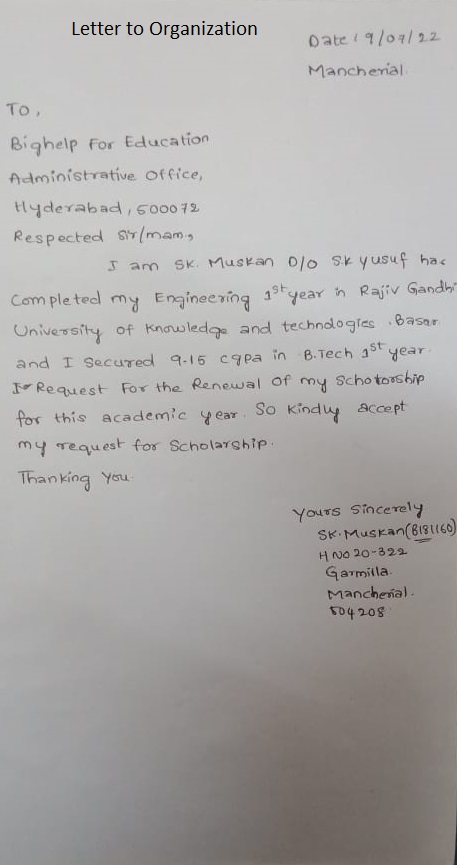 Letter to Organization
Date : 9/07/22
Mancherial.
To,
Bighelp For Education
Administrative Office,
Hyderabad, 500072
Respected Sir/mam,
I am SK. Muskan D/o S.k yusuf has
Completed my Engineering 1st year in Rajiv Gandhi
University of Knowledge and technologies , Basar
and I Secured 9.15 cgpa in B.Tech 1st year.
I Request For the Renewal Of my Schotorship
for this academic year. So Kindly Accept
my request for Scholarship.
Thanking You
Yours Sincerely
SK.Muskan(B181160)
H NO 20-322
Garmilla.
Mancherial.
504208